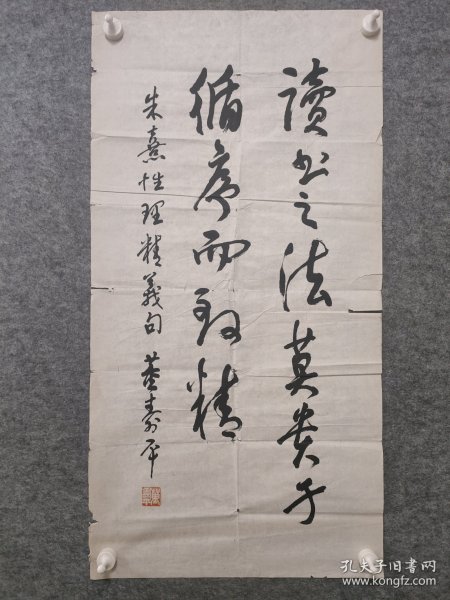 讀书之法莫贵于
循序而致精
朱熹性理精義句 董壽平
孔夫子旧书网
www.kongfz.com